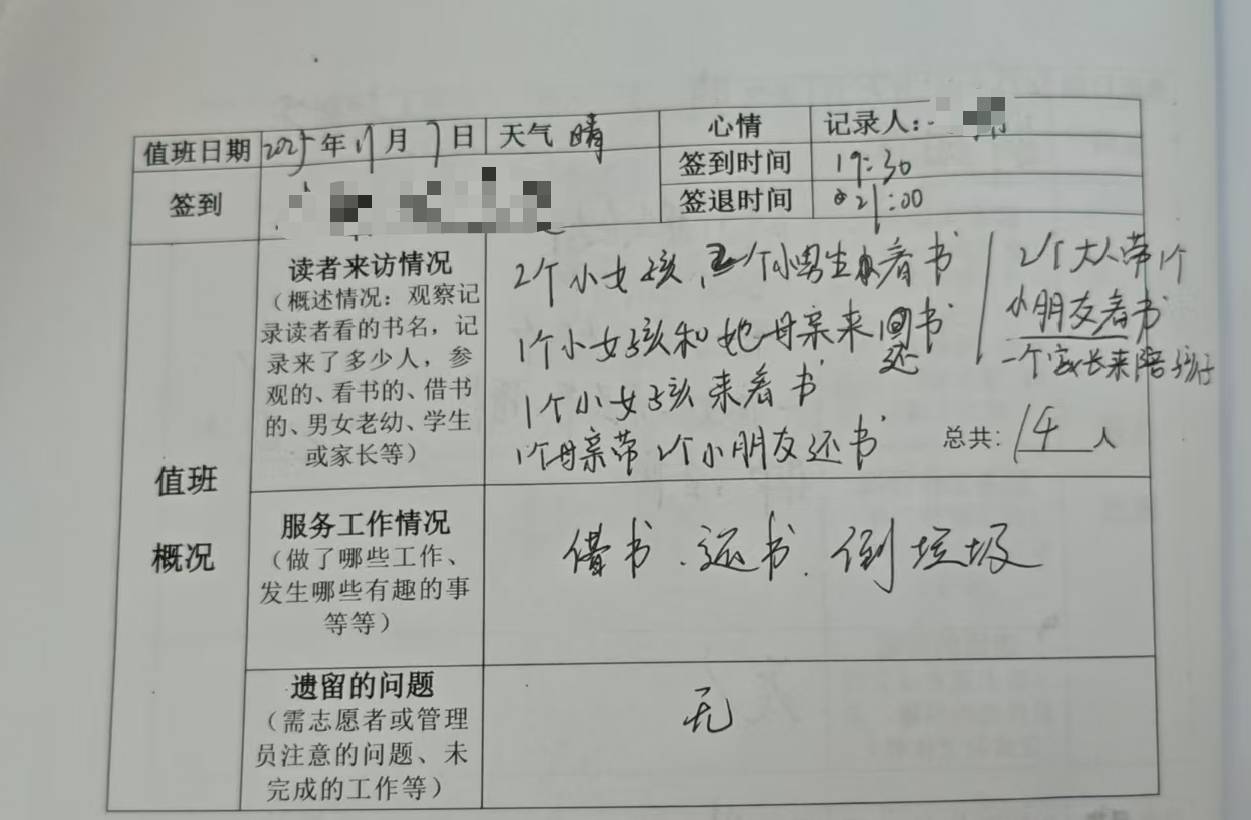 值班日期 2025年11月7日 天气 晴 心情 记录人:
签到 签到时间 19:30
签退时间 21:00
值班概况
读者来访情况
(概述情况:观察记
录读者看的书名,记
录来了多少人,参
观的、看书的、借书
的、男女老幼、学生
或家长等)
2个小女孩、2个小男生来看书
1个小女孩和她母亲来还书
1个小女孩来看书
1个母亲带2个小朋友还书
2个大人带1个
小朋友看书
一个家长来陪孩子
总共:14人
服务工作情况
(做了哪些工作、
发生哪些有趣的事
等等)
借书、还书、倒垃圾
遗留的问题
(需志愿者或管理
员注意的问题、未
完成的工作等)
无